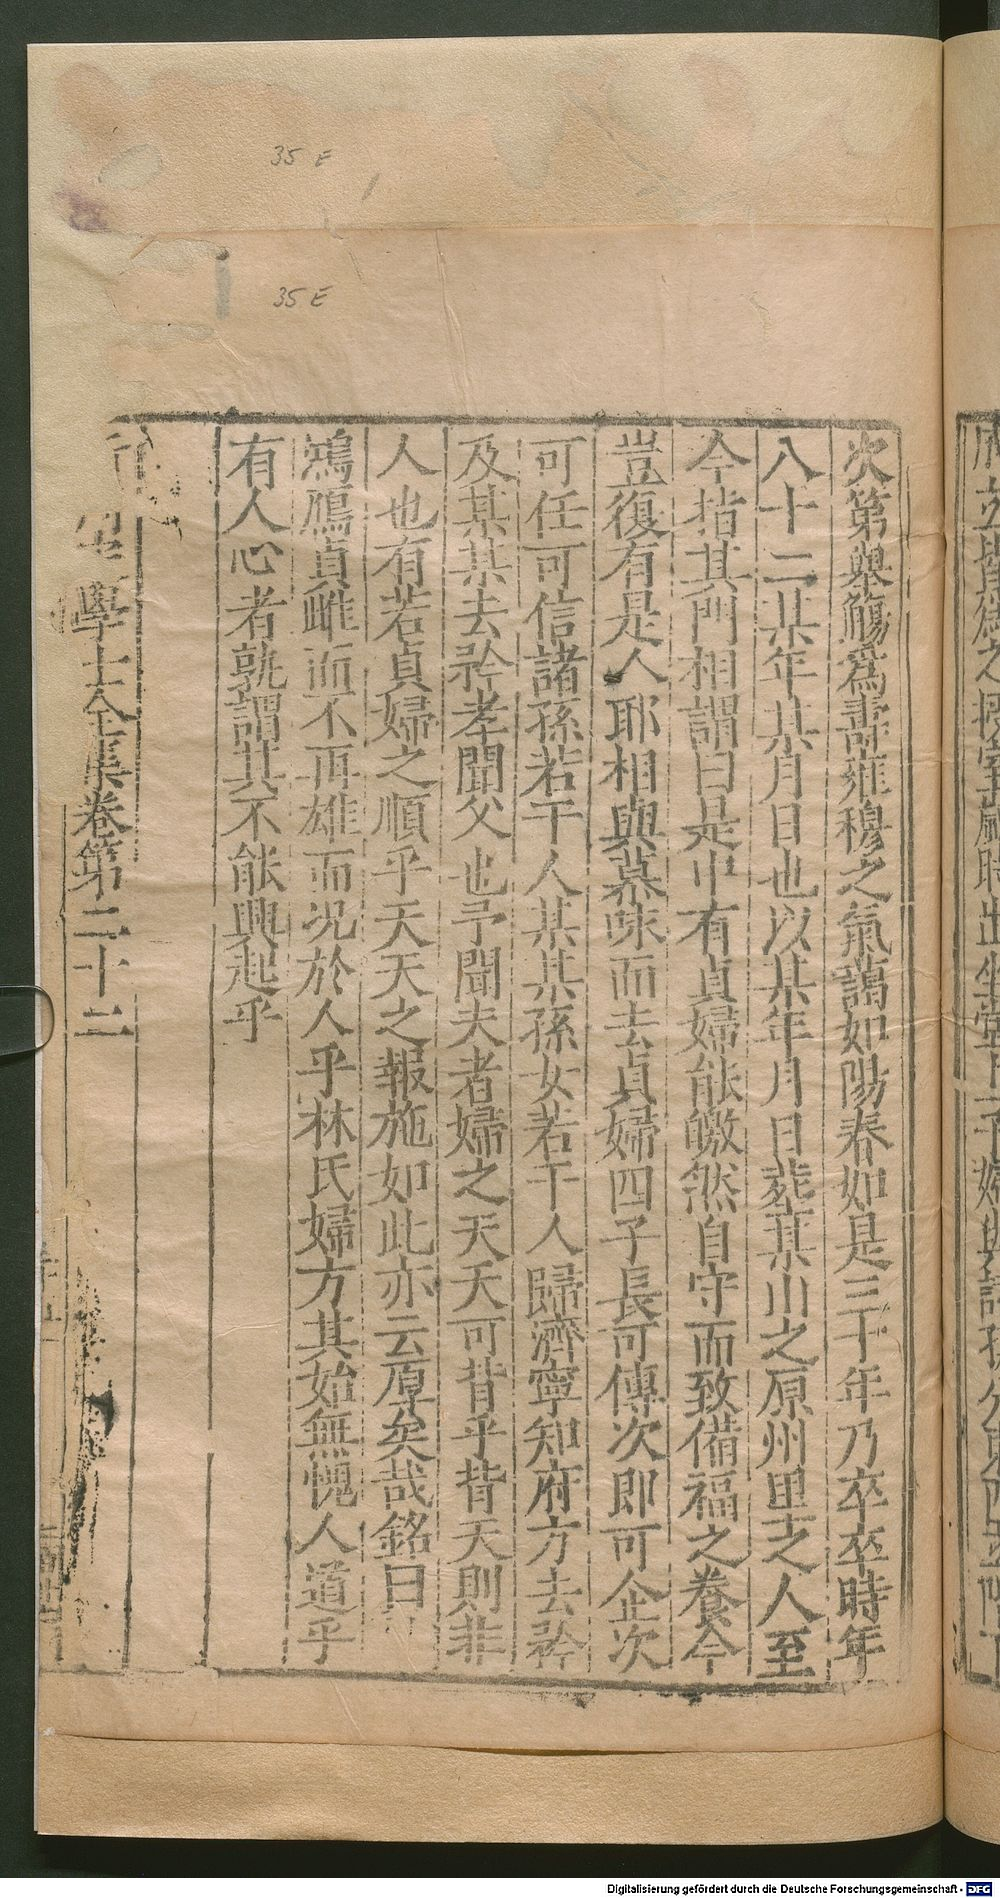 35 E
35 E
次第舉觴爲壽雍穆之氣藹如陽春如是三十年乃卒卒時年
八十二某年某月日也以某年月日葬某山之原州里之人至
今指其門相謂曰是中有貞婦能皦然自守而致備福之養今
豈復有是人耶相與慕味而去貞婦四子長可傳次即可企次
可任可信諸孫若干人某某孫女若干人歸濟寧知府方去矜
及某某去矜孝聞父也予聞夫者婦之天天可背乎背天則非
人也有若貞婦之順乎天天之報施如此亦云厚矣哉銘曰
鴻鴈貞雌而不再雄而况於人乎林氏婦方其始無愧人道乎
有人心者孰謂其不能興起乎
學士全集卷第二十二
Digitalisierung gefördert durch die Deutsche Forschungsgemeinschaft - DFG